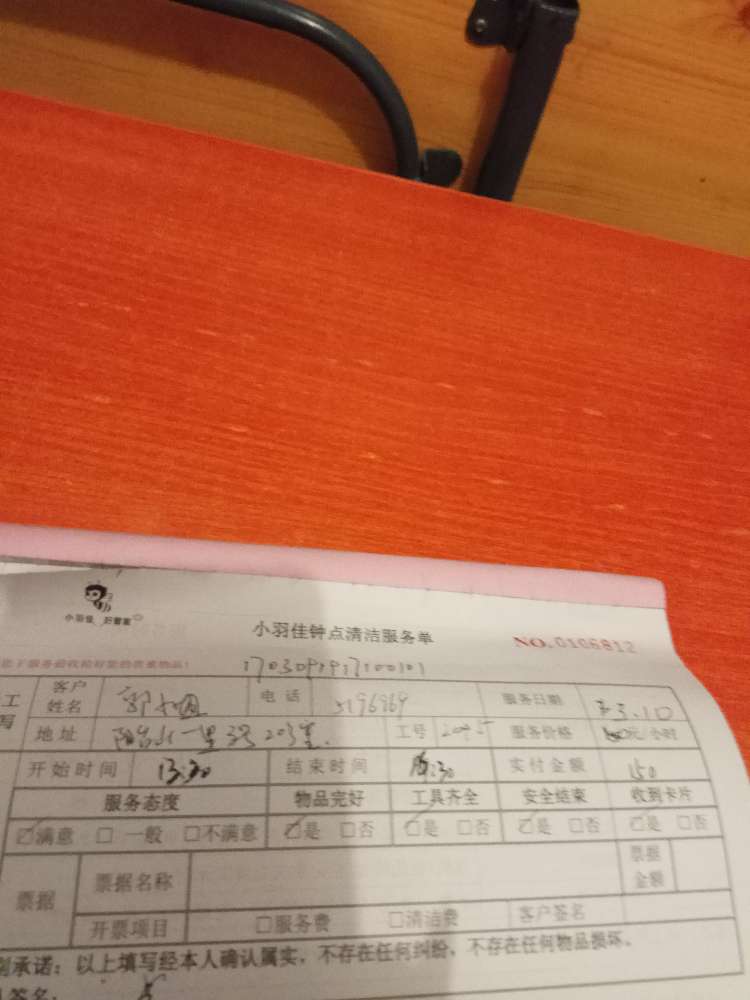 小羽佳 好管家
小羽佳钟点清洁服务单
NO.0106812
客户姓名 郭大姐 电话 5196969 服务日期 3.10
地址 阳台山一里 工号 服务价格 元/小时
开始时间 13:30 结束时间 16:30 实付金额 150
服务态度 物品完好 工具齐全 安全结束 收到卡片
☑满意 □一般 □不满意 ☑是 □否 ☑是 □否 ☑是 □否 ☑是 □否
票据 票据名称 票据金额
开票项目 □服务费 □清洁费 客户签名
承诺：以上填写经本人确认属实，不存在任何纠纷，不存在任何物品损坏。
签名：